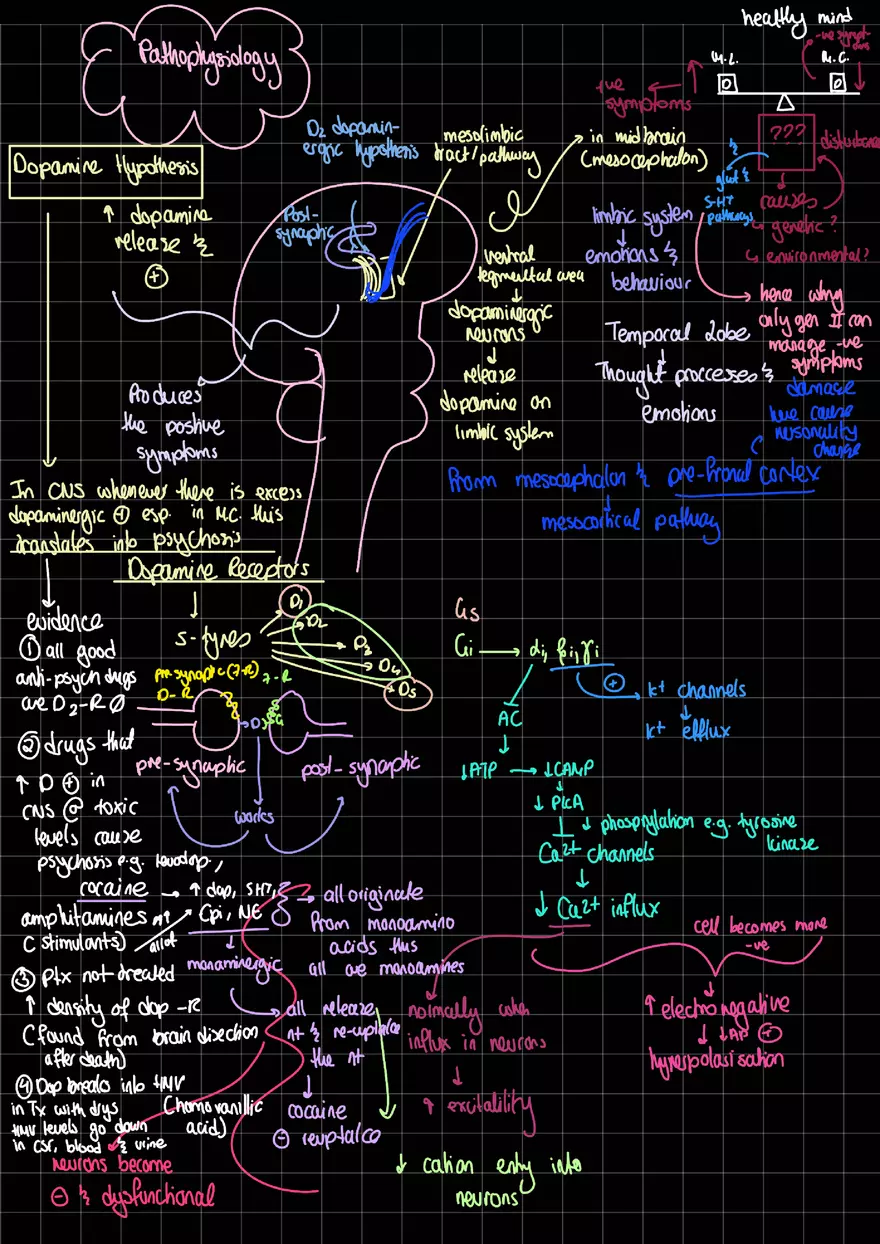 Pathophysiology
healthy mind
-ve sympt-
oms
M.L.
M.C.
+ve
symptoms
???
disturbance
causes
↳ genetic?
↳ environmental?
glut &
5-HT
pathways
hence why
only gen II can
manage -ve
symptoms
Dopamine Hypothesis
↑ dopamine
release &
+
Produces
the postive
symptoms
D2 dopamin-
ergic hypothesis
Post-
synaptic
mesolimbic
tract/pathway
in midbrain
(mesocephalon)
ventral
tegmental area
↓
dopaminergic
neurons
↓
release
dopamine on
limbic system
limbic system
↓
emotions &
behaviour
Temporal Lobe
↓
Thought proccesses &
emotions
damage
here cause
personality
change
From mesocephalon & pre-fronal cortex
↓
mesocortical pathway
In CNS whenever there is excess
dopaminergic + esp. in MC this
translates into psychosis
evidence
① all good
anti-psych drugs
are D2-R Ø
② drugs that
↑ D + in
CNS @ toxic
levels cause
psychosis e.g. levodop.,
cocaine → ↑ dop, 5HT,
Epi, NE
amphitamines
(stimulants)
③ Ptx not treated
↑ density of dop-R
(found from brain disection
after death)
④ Dop breaks into HMV
(homovanillic
acid)
in Tx with drgs
HMV levels go down
in CSF, blood & urine
neurons become
⊖ & dysfunctional
Dopamine Receptors
5-types
D1
D2
D3
D4
D5
pre-synaptic (7-R)
D-R
7-R
D
pre-synaptic
post-synaptic
works
monaminergic
→ all originate
from monoamino
acids thus
all are monoamines
all release
nt & re-uptake
the nt
↓
cocaine
⊖ reuptake
Gs
Gi → αi, βi, γi
+
K+ channels
↓
K+ efflux
AC
↓
↓ATP → ↓CAMP
↓
↓ PKA
↓ phosprylation e.g. tyrosine
kinase
Ca2+ channels
↓
↓ Ca2+ influx
normally when
influx in neurons
↓
↑ excitality
cell becomes more
-ve
↑ electronegative
↓ ↓AP +
hyperpolarisation
↓ cation entry into
neurons